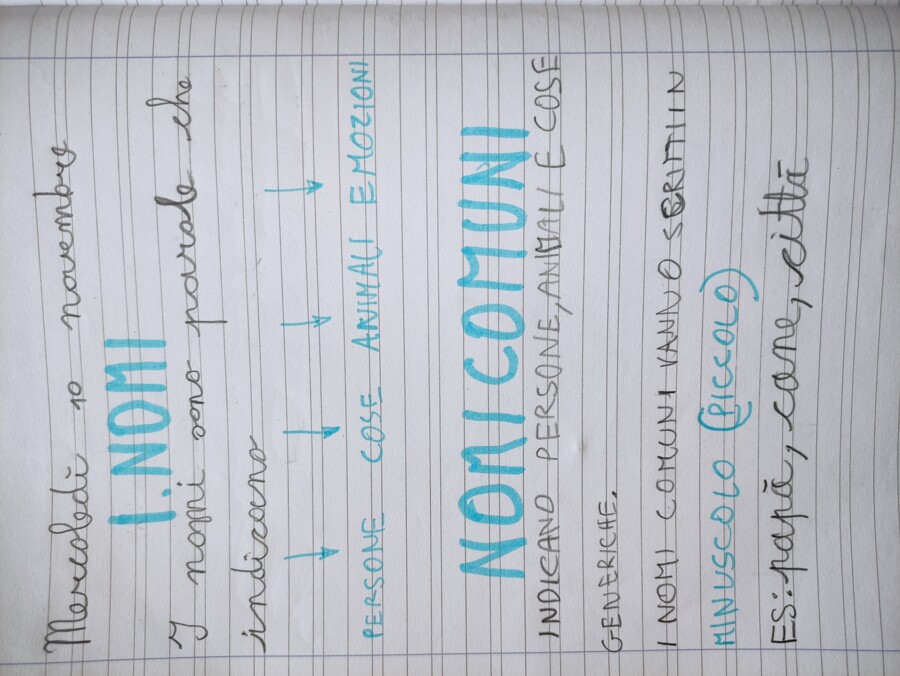 Mercoledì 10 novembre
I.NOMI
I nomi sono parole che
indicano
PERSONE COSE ANIMALI EMOZIONI
NOMI COMUNI
INDICANO PERSONE, ANIMALI E COSE
GENERICHE.
I NOMI COMUNI VANNO SCRITTI IN
MINUSCOLO (PICCOLO)
ES: papà, cane, città